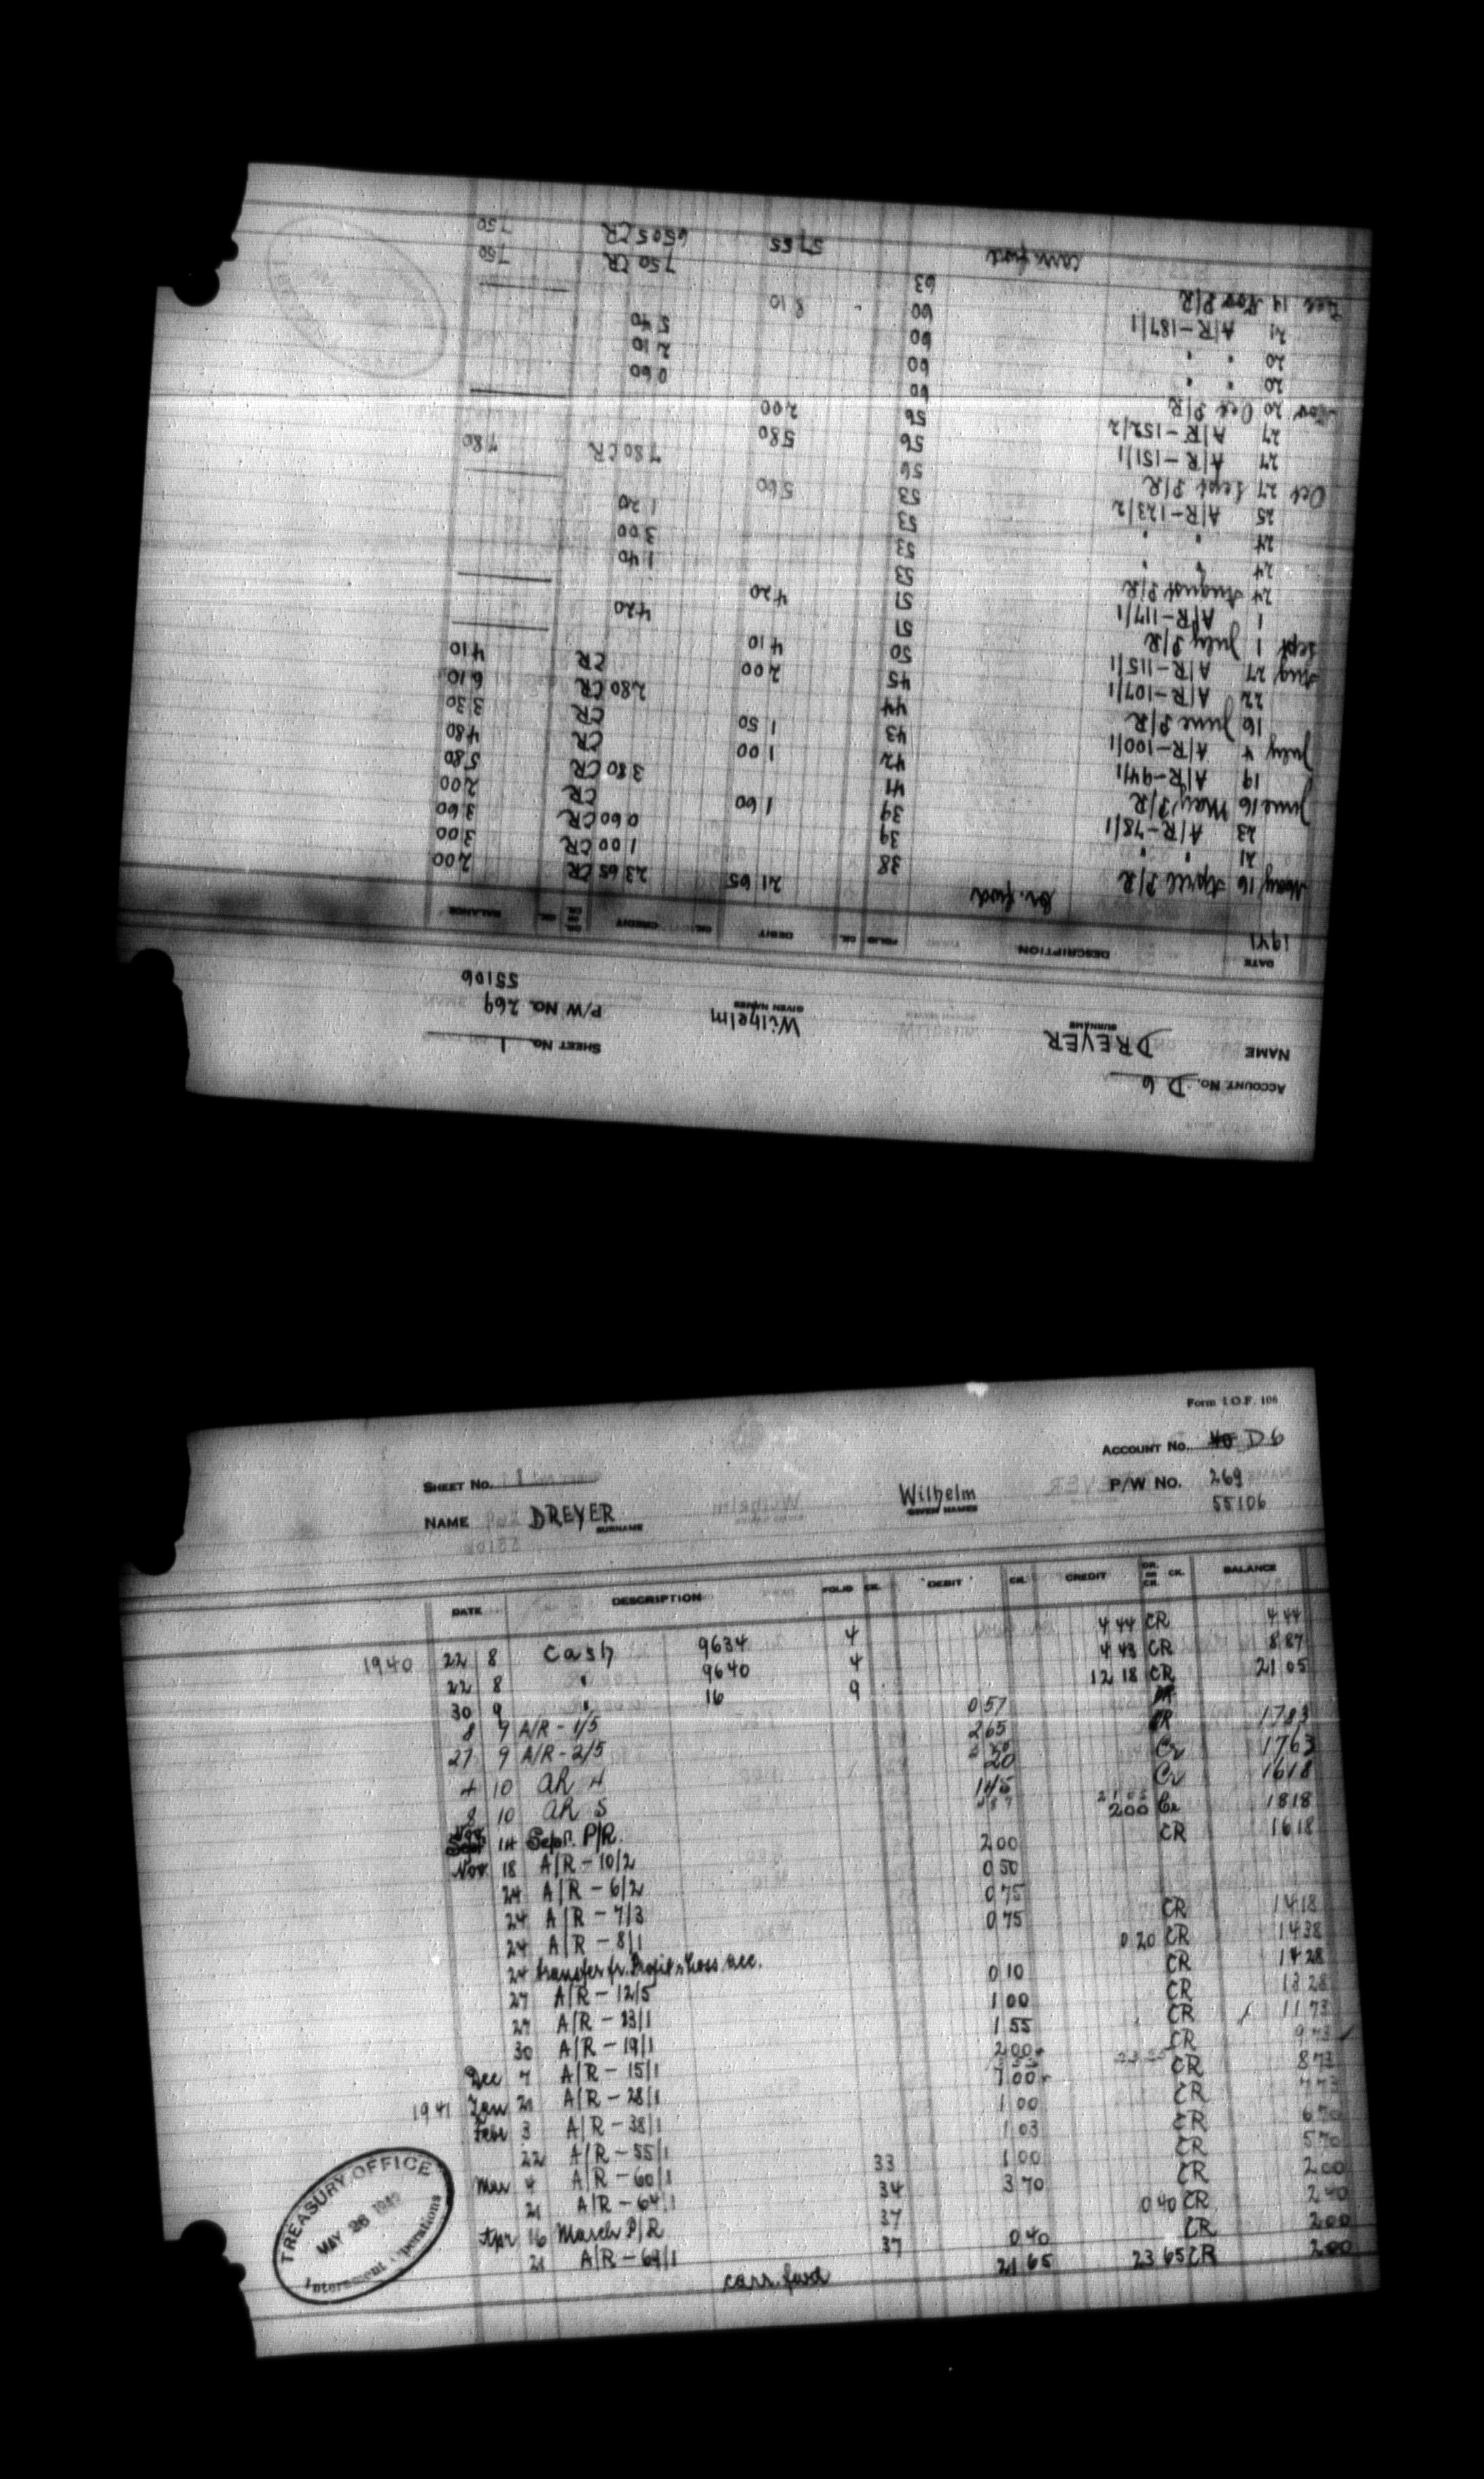 ACCOUNT No. D 6
NAME DREYER Wilhelm SHEET No. 1
SURNAME GIVEN NAMES P/W No. 269
55106
DATE DESCRIPTION FOLIO CK. DEBIT CK. CREDIT DR. OR CR. CK. BALANCE
1941
Br. fwd 21 65 23 65 CR 2 00
May 16 April P/R 38 1 00 CR 3 00
21 " " 39 0 60 CR 3 60
23 A/R-78/1 39 1 60 CR 2 00
June 16 May P/R 41 3 80 CR 5 80
19 A/R-94/1 42 1 00 CR 4 80
July 4 A/R-100/1 43 1 50 CR 3 30
16 June P/R 44 2 80 CR 6 10
22 A/R-107/1 45 2 00 CR 4 10
Aug 27 A/R-115/1 50 4 10
Sept 1 July P/R 51 4 20
1 A/R-117/1 51 4 20
24 August P/R 53 1 40
24 " " 53 3 00
24 " " 53 1 20
25 A/R-123/2 53 5 60
Oct 27 Sept P/R 56 7 80 CR 7 80
27 A/R-151/1 56 5 80
27 A/R-152/2 56 2 00
Nov 20 Oct P/R 60 0 60
20 " " 60 2 10
20 " " 60 5 40
21 A/R-187/1 60 8 10
Dec 19 Nov P/R 63 7 50 CR 7 50
Carr. fwd 57 55 65 05 CR 7 50
Form I.O.F. 106
ACCOUNT No. D 6
SHEET No. 1 P/W No. 269
NAME DREYER Wilhelm 55106
SURNAME GIVEN NAMES
DATE DESCRIPTION FOLIO CK. DEBIT CK. CREDIT DR. OR CR. CK. BALANCE
1940 22 8 Cash 9634 4 4 44 CR 4 44
22 8 " 9640 4 4 43 CR 8 87
30 9 " 16 9 12 18 CR 21 05
8 9 A/R-1/5 0 57
27 9 A/R-2/5 2 65 CR 17 83
4 10 AR 4 20 Cr 17 63
8 10 AR 5 1 45 Cr 16 18
Nov 14 Sept. P/R. 2 00 Cr 18 18
Nov 18 A/R-10/2 2 00 CR 16 18
24 A/R-6/2 0 50
24 A/R-7/3 0 75
24 A/R-8/1 0 75 CR 14 18
24 transfer fr. Profit & Loss acc. 0 20 CR 14 38
27 A/R-12/5 0 10 CR 14 28
27 A/R-23/1 1 00 CR 13 28
30 A/R-19/1 1 55 CR 11 73
Dec 7 A/R-15/1 2 00 CR 9 73
1941 Jan 21 A/R-28/1 1 00 CR 8 73
Febr 3 A/R-38/1 1 00 CR 7 73
22 A/R-55/1 1 03 CR 6 70
Mar 4 A/R-60/1 33 1 00 CR 5 70
21 A/R-64/1 34 3 70 CR 2 00
Apr 16 March P/R 37 0 40 CR 2 40
21 A/R-69/1 37 0 40 CR 2 00
carr. fwd 21 65 23 65 CR 2 00
TREASURY OFFICE
MAY 26
Internment Operations